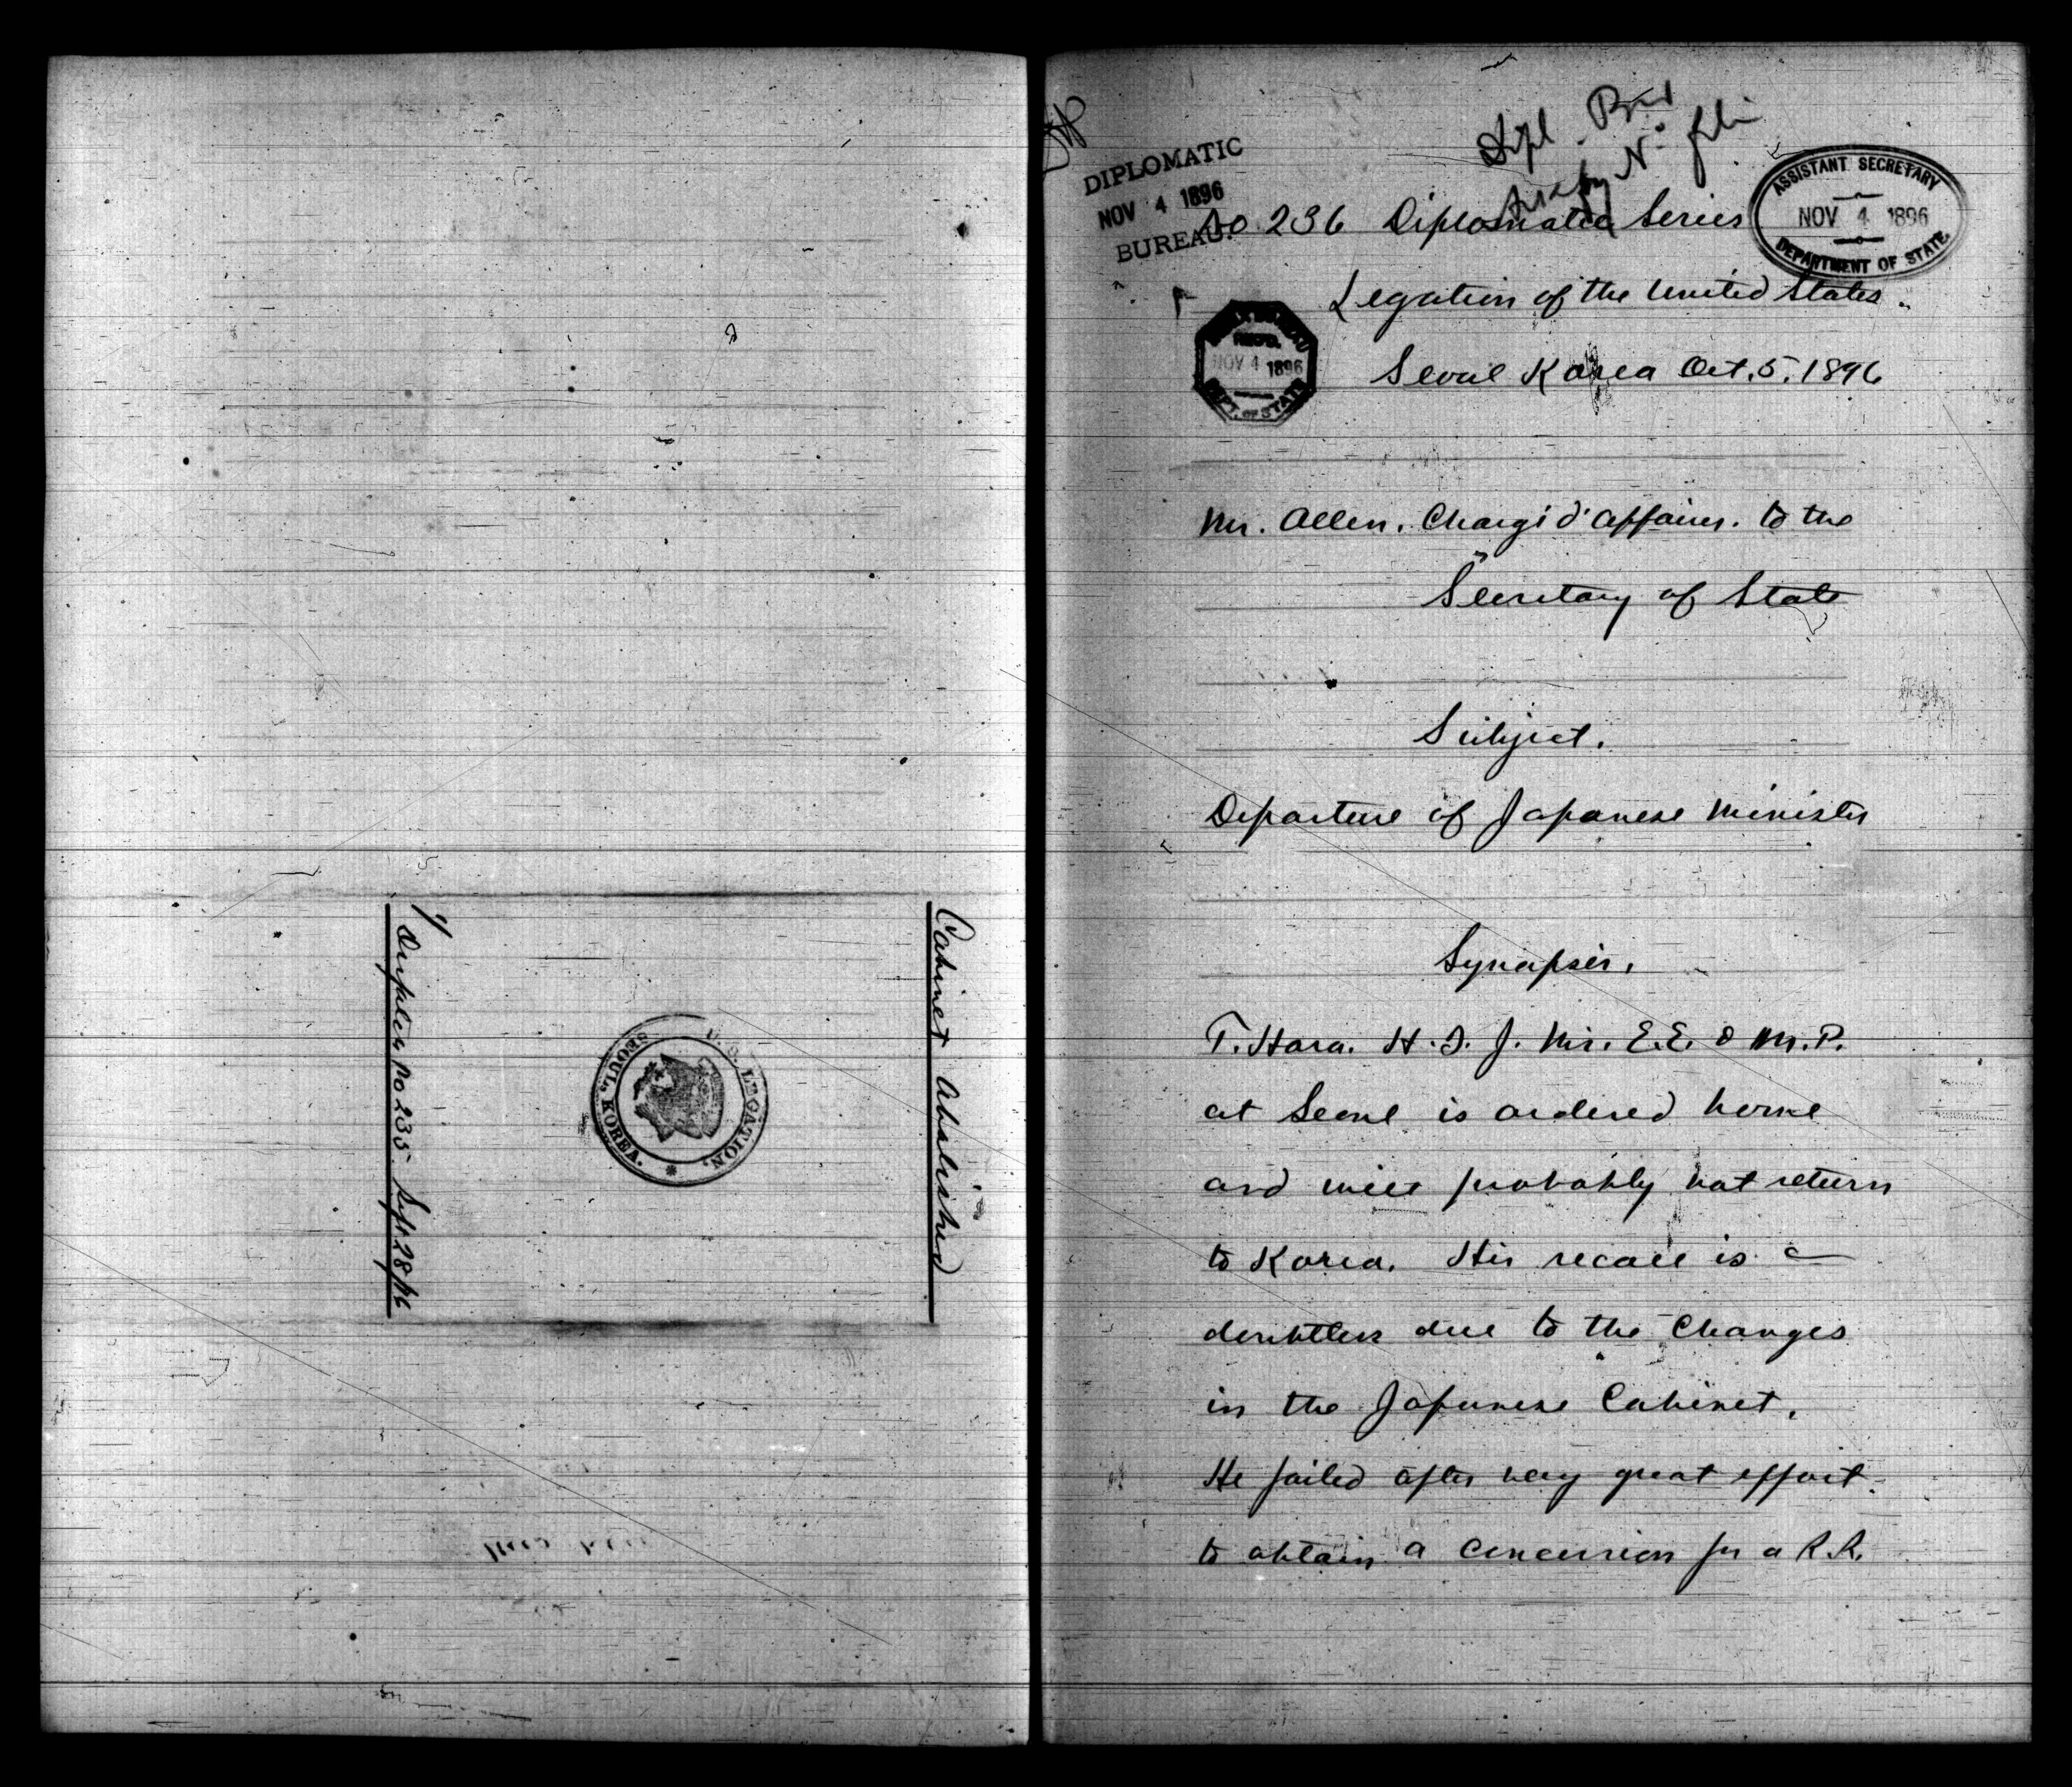 Cabinet Abolished
U. S. LEGATION.
SEOUL, KOREA.
1/ Duplicate No 235. Sept 28/96
DIPLOMATIC
NOV 4 1896
BUREAU.
ASSISTANT SECRETARY
NOV 4 1896
DEPARTMENT OF STATE.
No 236 Diplomatic Series
Legation of the United States.
Seoul Korea Oct. 5. 1896
INDEX BUREAU
REC'D.
NOV 4 1896
DEPT. OF STATE
Mr. Allen. Chargé d'affaires. to the
Secretary of State
Subject.
Departure of Japanese Minister
Synopsis.
T. Hara. H. I. J. M's. E.E. & M.P.
at Seoul is ordered home
and will probably not return
to Korea. His recall is
doubtless due to the Changes
in the Japanese Cabinet.
He failed after very great effort
to obtain a concession for a R.R.